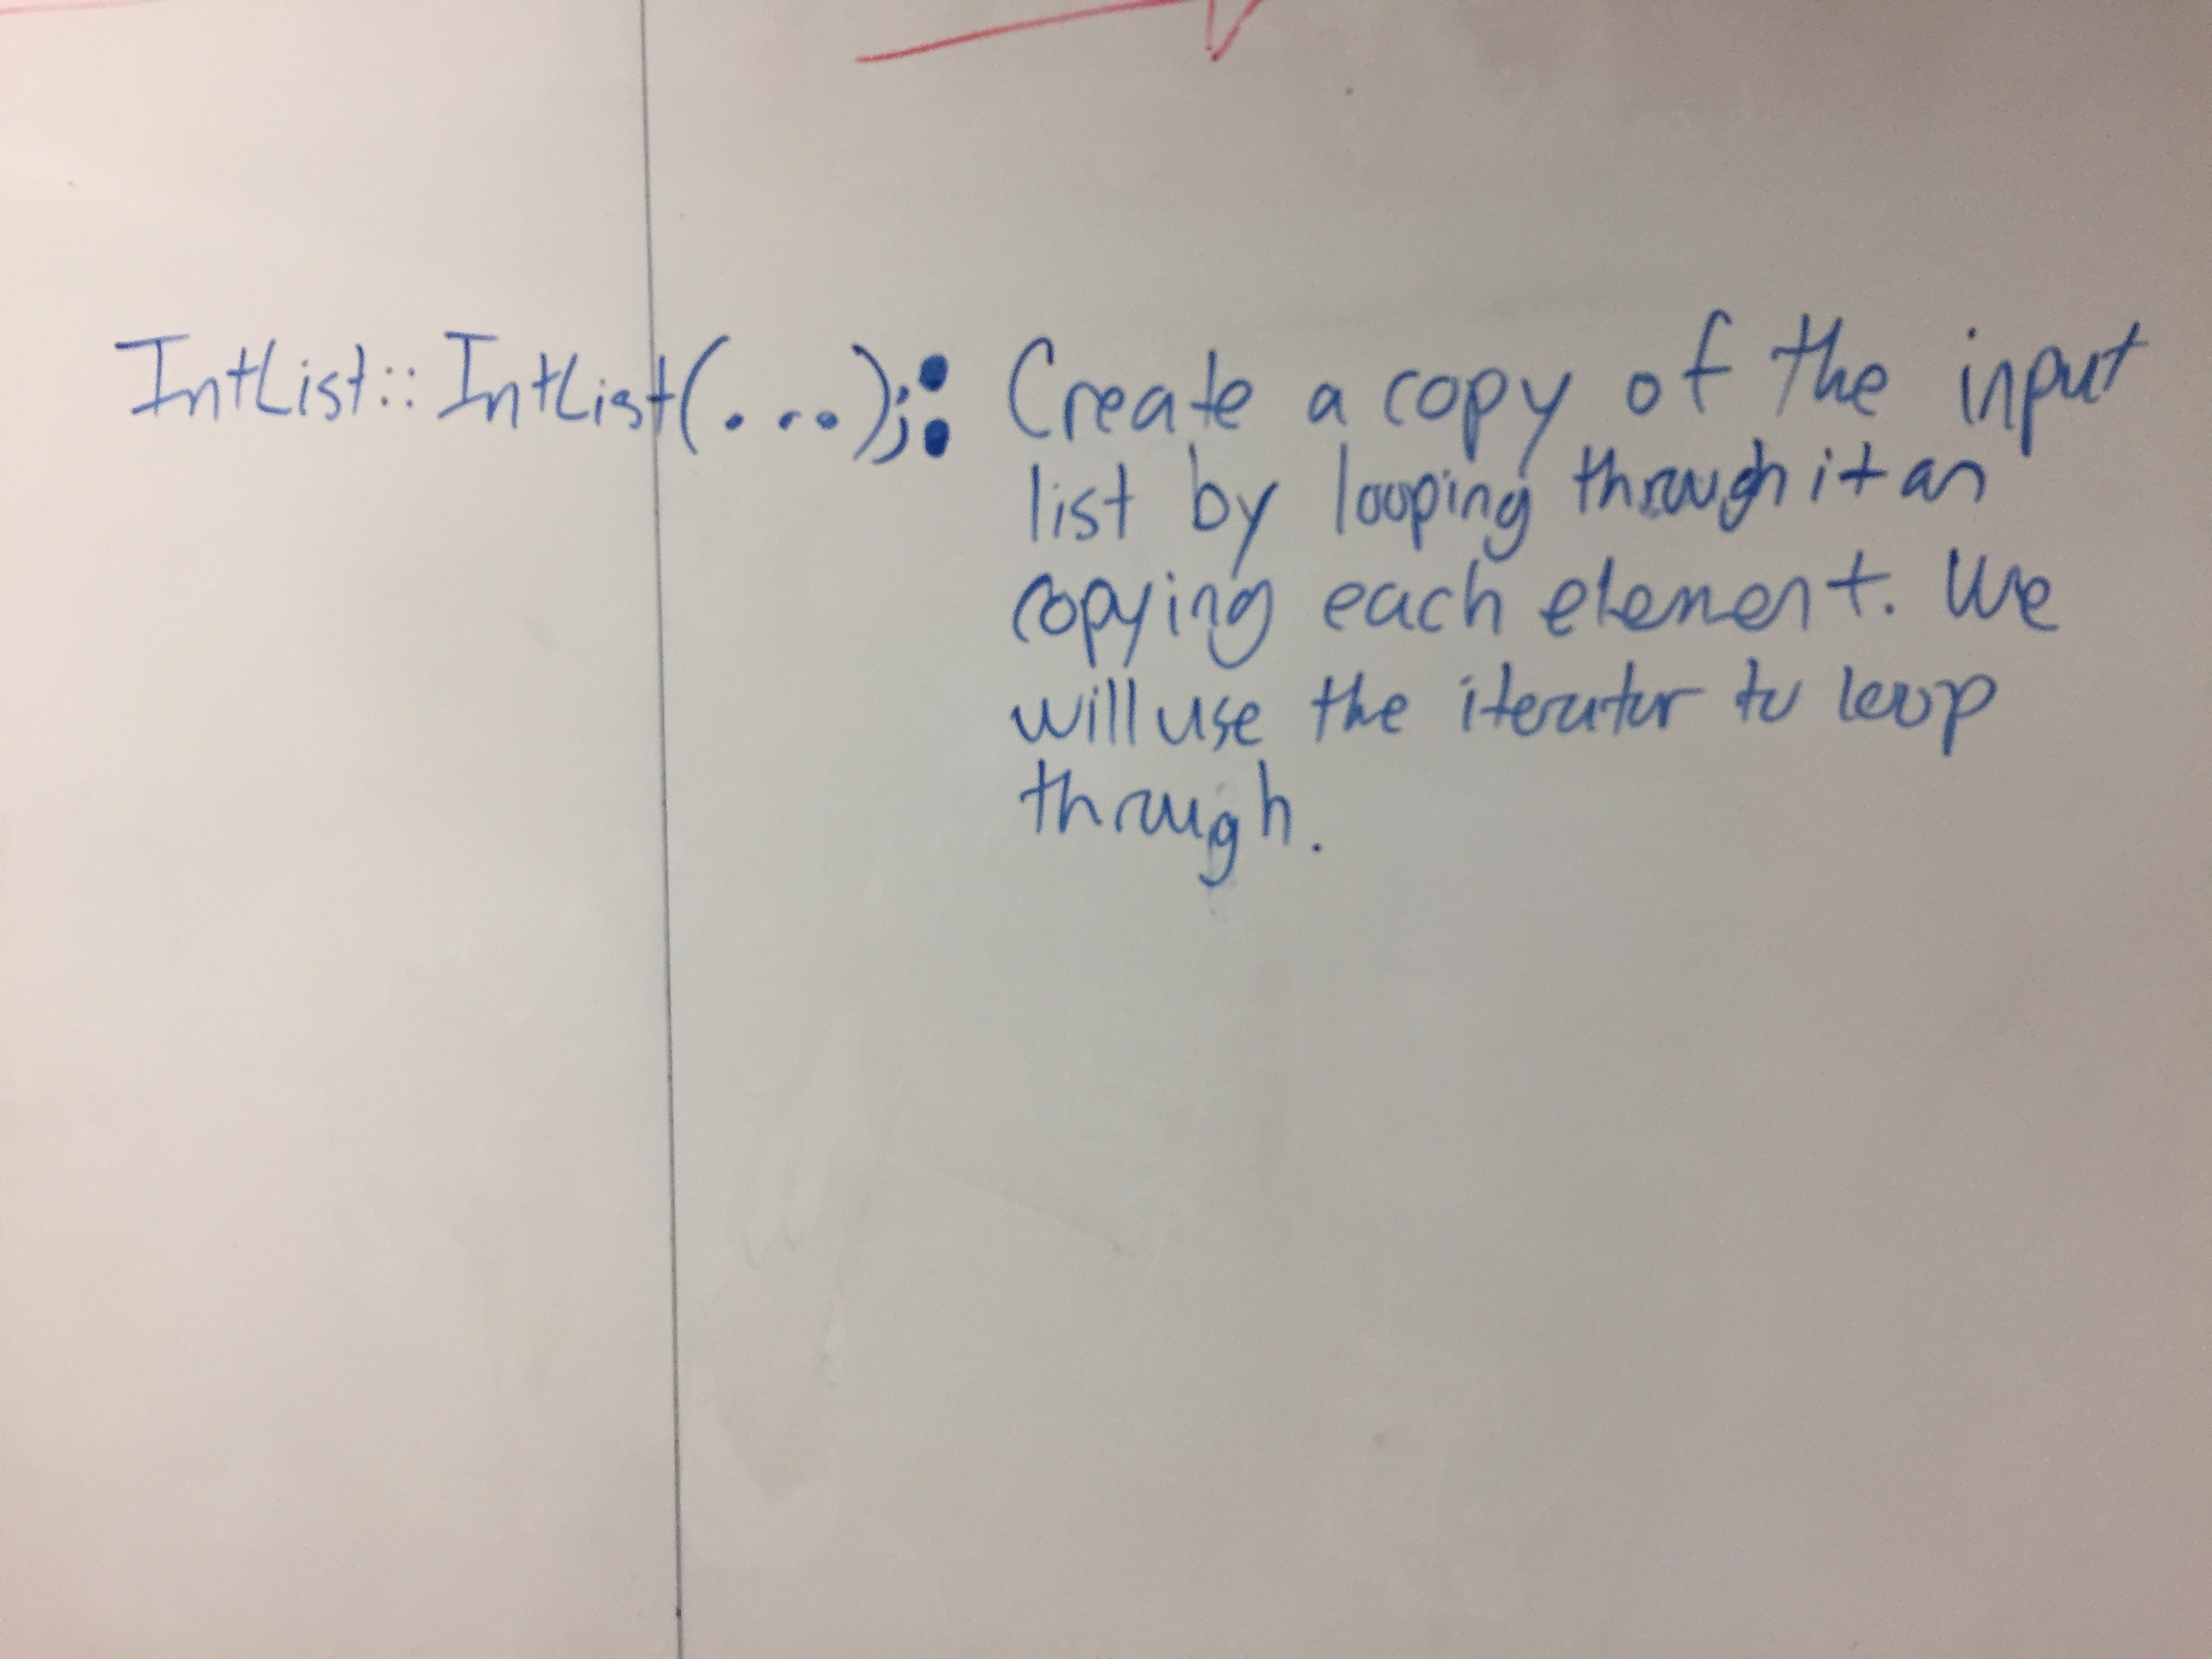 IntList::IntList(...);: Create a copy of the input
list by looping through it an
copying each element. We
will use the iterator to loop
through.